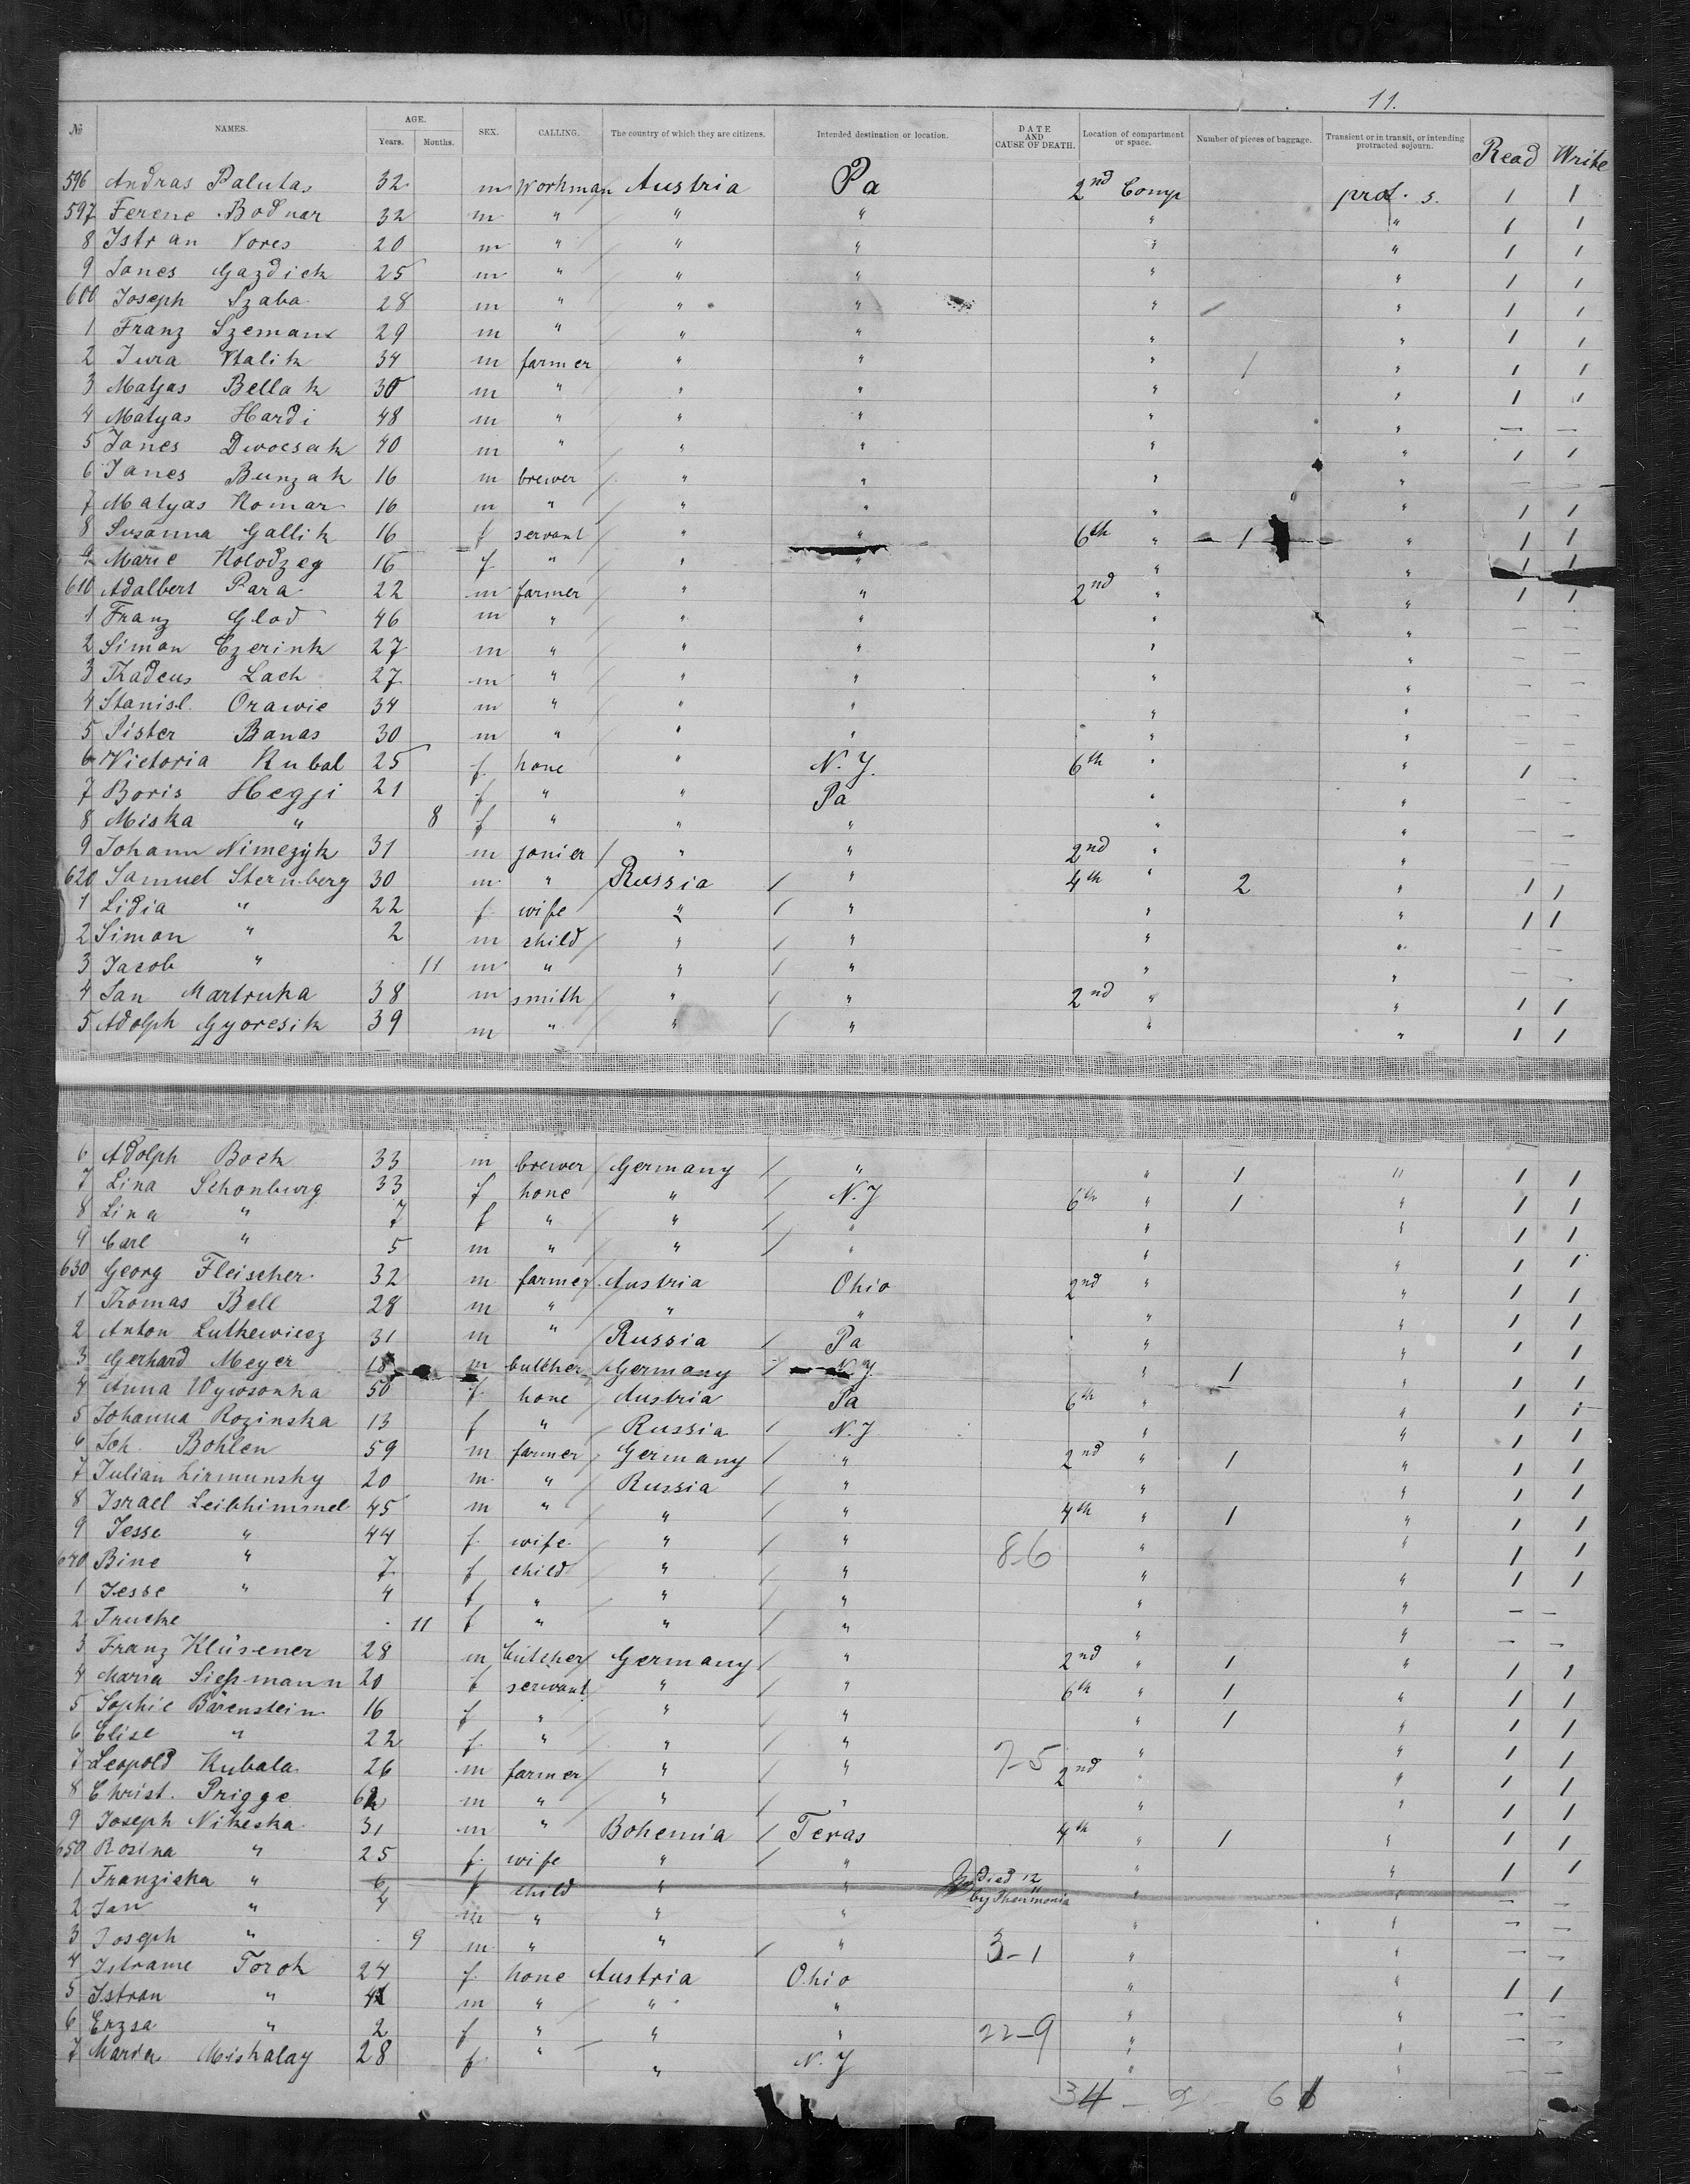 11.
№ NAMES. AGE. Years. Months. SEX. CALLING. The country of which they are citizens. Intended destination or location. DATE AND CAUSE OF DEATH. Location of compartment or space. Number of pieces of baggage. Transient or in transit, or intending protracted sojourn. Read Write
596 Andras Palutas 32 m Workman Austria Pa 2nd Comp prot. s. 1 1
597 Ferenc Bodnar 32 m " " " " " 1 1
8 Istran Vores 20 m " " " " " 1 1
9 Janes Gazdick 25 m " " " " " 1 1
600 Joseph Szaba 28 m " " " " " 1 1
1 Franz Szemann 29 m " " " " " 1 1
2 Jura 34 m farmer " " " 1 " 1 1
3 Matjas Bellak 30 m " " " " " 1 1
4 Matyas Hardi 48 m " " " " " — —
5 Janes Dwoesak 40 m " " " " " 1 1
6 Janes Bunzak 16 m brewer " " " " — —
7 Matyas Komar 16 m " " " " " 1 1
8 Susanna Gallik 16 f servant " " 6th " 1 " 1 1
9 Marie Kolodzey 16 f " " " " " 1 1
610 Adalbert Para 22 m farmer " " 2nd " " 1 1
1 Franz Glod 46 m " " " " " — —
2 Simon Czerink 27 m " " " " " — —
3 Thadeus Lach 27 m " " " " " — —
4 Stanisl. Orawie 34 m " " " " " — —
5 Pister Banas 30 m " " " " " — —
6 Victoria Kubal 25 f hone " N.Y. 6th " " 1 —
7 Boris Hegji 21 f " " Pa " " — —
8 Miska " 8 f " " " " " — —
9 Johann Nimezyk 31 m jonier " " 2nd " " — —
620 Samuel Sternberg 30 m " Russia " 4th " 2 " 1 1
1 Lidia " 22 f wife " " " " 1 1
2 Simon " 2 m child " " " " — —
3 Jacob " 11 m " " " " " — —
4 Jan Martruka 38 m smith " " 2nd " " 1 1
5 Adolph Gyoresik 39 m " " " " " 1 1
6 Adolph Bock 33 m brewer Germany " " 1 " 1 1
7 Lina Schonburg 33 f hone " N.Y 6th " 1 " 1 1
8 Lina " 7 f " " " " " 1 1
9 Carl " 5 m " " " " " 1 1
630 Georg Fleischer 32 m farmer Austria Ohio 2nd " " 1 1
1 Thomas Bell 28 m " " " " " 1 1
2 Anton Lutkewicz 31 m " Russia Pa " " 1 1
3 Gerhard Meyer 18 m butcher Germany N.Y. " 1 1 1
4 Anna Wywsonka 50 f hone Austria Pa 6th " " 1 1
5 Johanna Rozinska 13 f " Russia N.Y " " 1 1
6 Joh. Bohlen 59 m farmer Germany " 2nd " 1 " 1 1
7 Julian Lirmunsky 20 m " Russia " " " 1 1
8 Israel Leibhimmel 45 m " " " 4th " 1 " 1 1
9 Jesse " 44 f wife " " 8-6 " " 1 1
640 Bine " 7 f child " " " " 1 1
1 Jesse " 4 f " " " " " — —
2 Trucke 11 f " " " " " — —
3 Franz Klüsener 28 m butcher Germany " 2nd " 1 " 1 1
4 Maria Sießmann 20 f servant " " 6th " 1 " 1 1
5 Sophie Bärenstein 16 f " " " " 1 " 1 1
6 Elise " 22 f " " " " " 1 1
7 Leopold Kubala 26 m farmer " " 7-5 2nd " " 1 1
8 Christ. Prigge 62 m " " " " " 1 1
9 Joseph Nikeska 31 m " Bohemia Texas 4th " 1 " 1 1
650 Rosina " 25 f wife " " " " 1 1
1 Franziska " 6 f child " " Died 12 by Pneumonia " " — —
2 Jan " 4 m " " " " " — —
3 Joseph " 9 m " " " 3-1 " " — —
4 Istrame Torok 24 f hone Austria Ohio " " 1 1
5 Istran " 4 m " " " " " — —
6 Erzsa " 2 f " " " 22-9 " " — —
7 Maria Mishalay 28 f " " N.Y " " — —
34 - 9 - 61